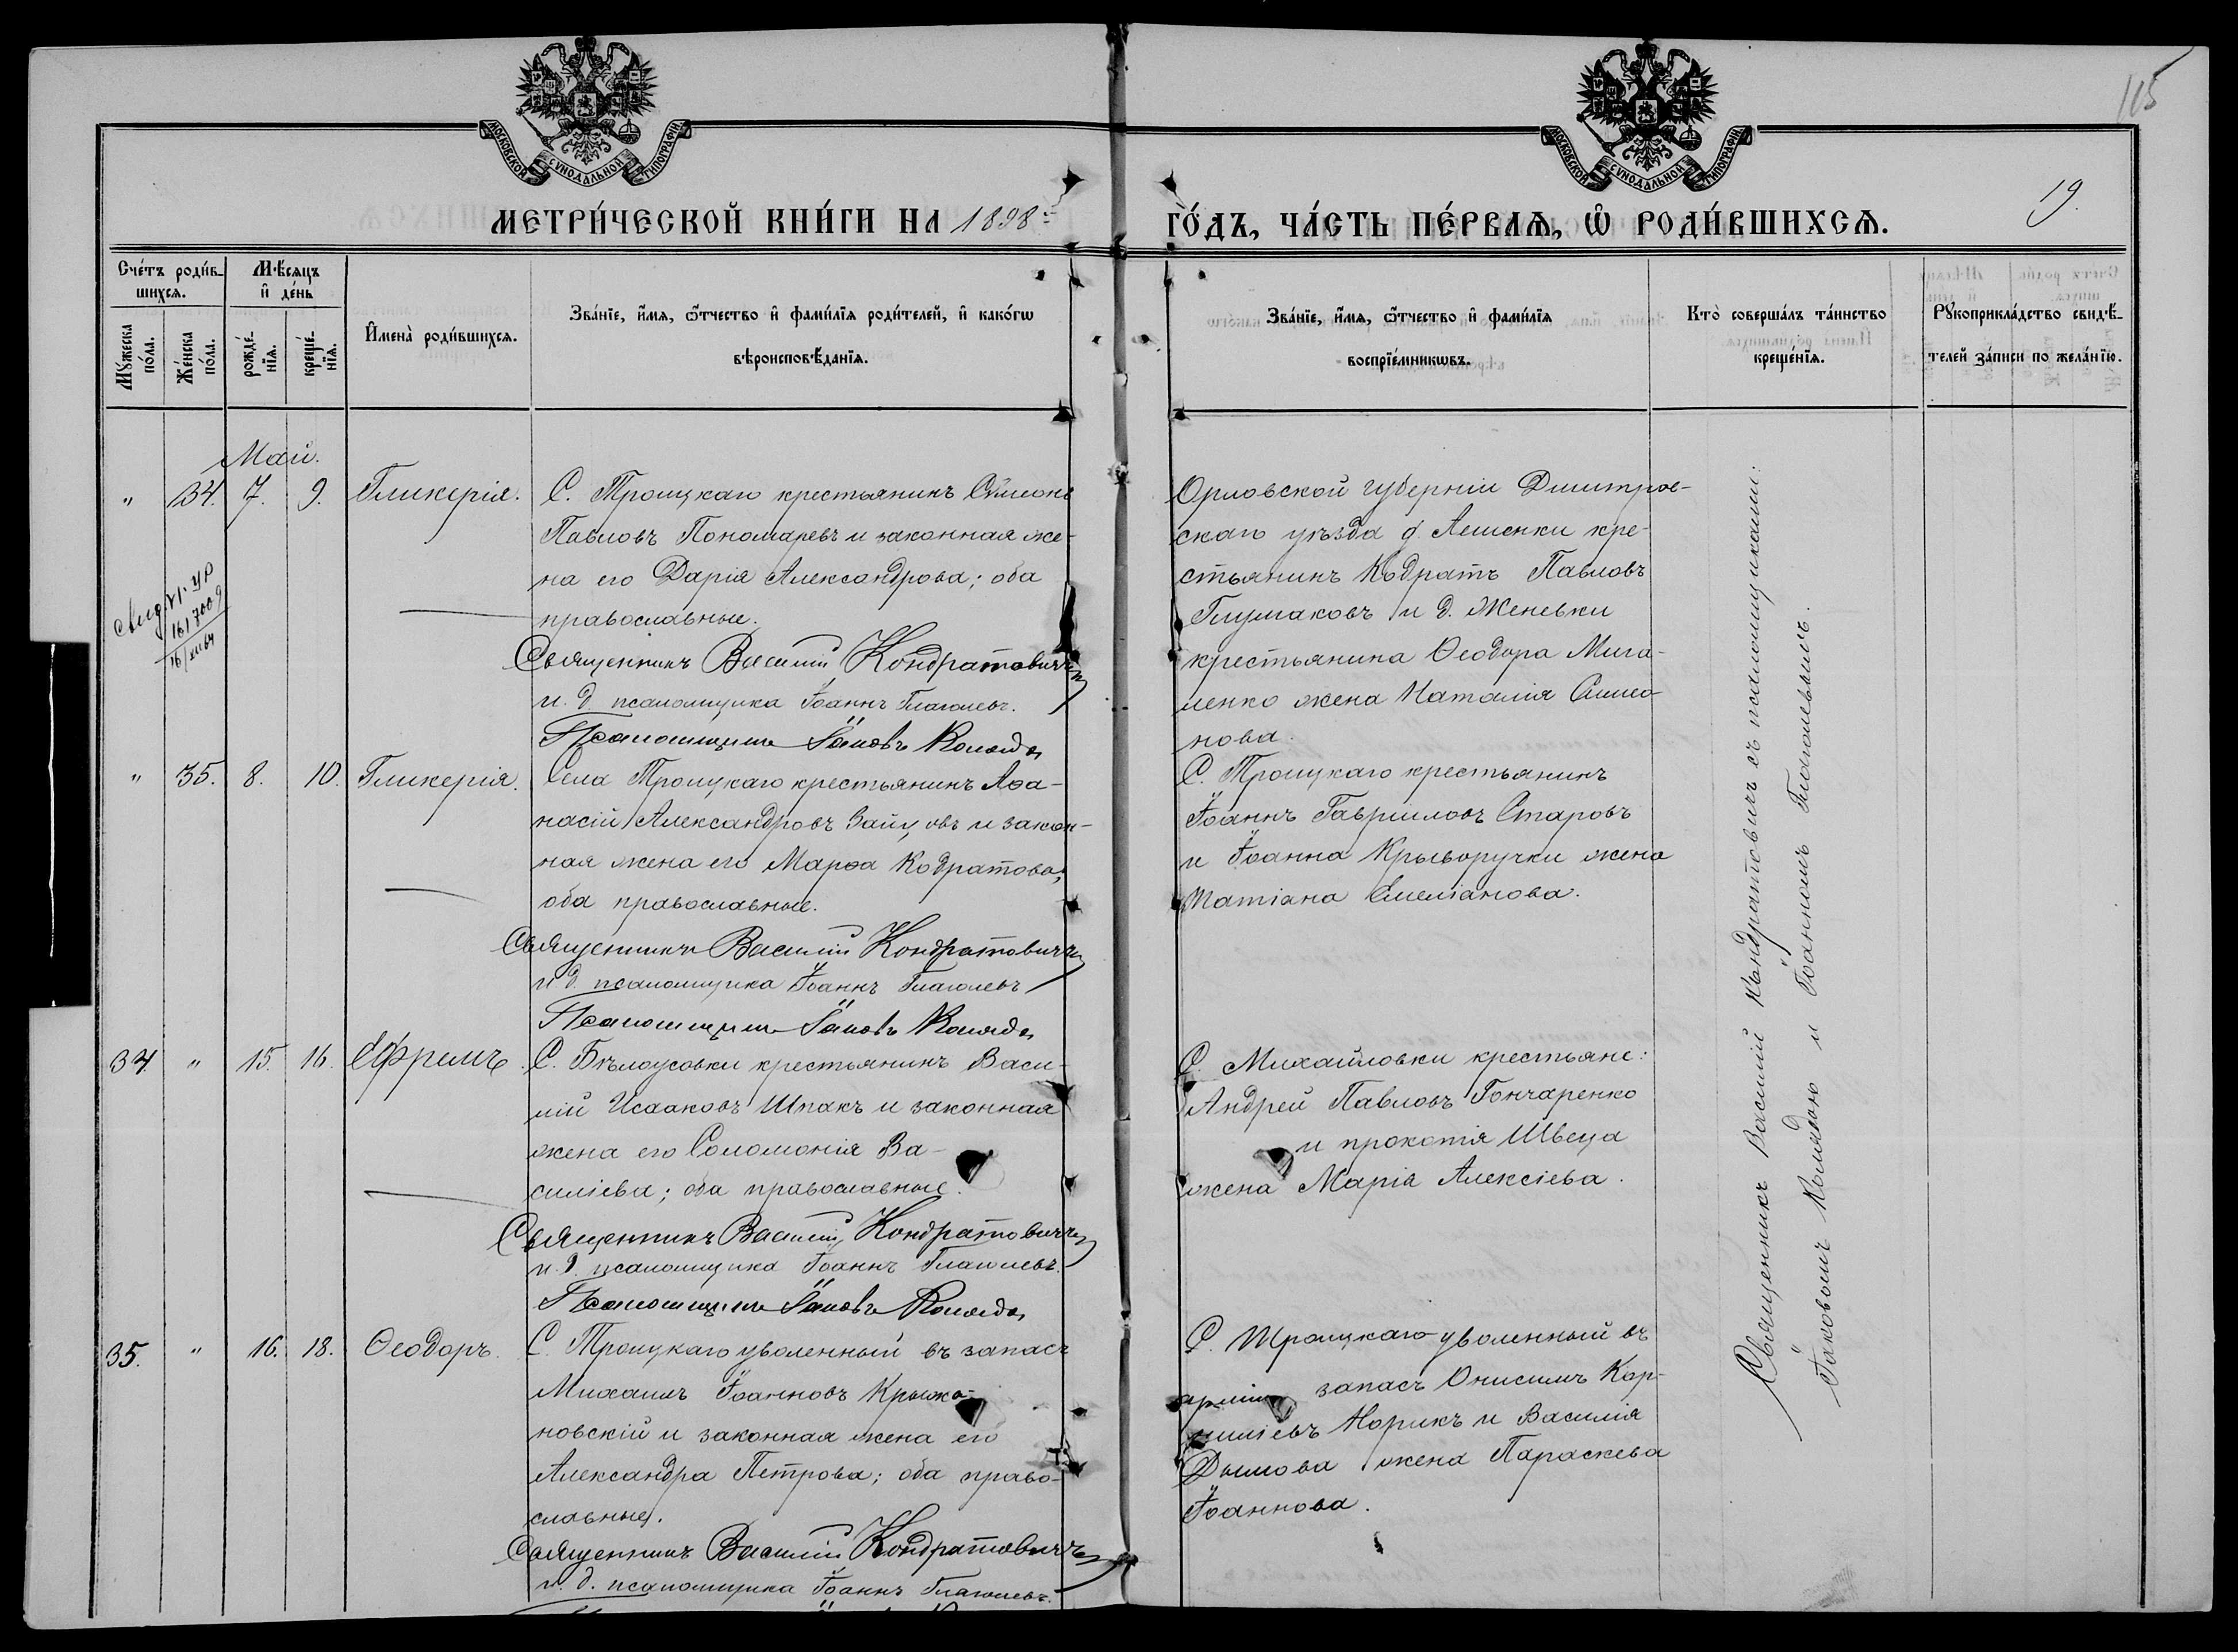 115
МОСКОВСКОЙ СУНОДАЛЬНОЙ ТИПОГРАФІИ
МОСКОВСКОЙ СУНОДАЛЬНОЙ ТИПОГРАФІИ
19.
МЕТРИ́ЧЕСКОЙ КНИ́ГИ НА 1898 ГО́ДЪ, ЧА́СТЬ ПЕ́РВАѦ, Ѡ РОДИ́ВШИХСѦ.
Сче́тъ роди́в-
шихсѧ.
Мꙋ́жеска по́ла.
Же́нска по́ла.
Мѣ́сяцъ и҆ де́нь
рожде́-нїѧ.
креще́-нїѧ.
И҆мена̀ роди́вшихсѧ.
Зва́нїе, и҆́мѧ, ѻ҆́тчество и҆ фами́лїѧ роди́телей, и҆ како́гѡ
вѣроисповѣ́данїѧ.
Зва́нїе, и҆́мѧ, ѻ҆́тчество и҆ фами́лїѧ
воспрїе́мникѡвъ.
Кто̀ соверша́лъ та́инство
креще́нїѧ.
Рꙋкоприкла́дство свидѣ́-
телей за́писи по жела́нїю.
Май.
" 34. 7. 9. Гликерія.
С. Троицкаго крестьянинъ Симеонъ
Павловъ Пономаревъ и законная же-
на его Дарія Александрова; оба
православные.
Священникъ Василій Кондратовичъ
и. д. псаломщика Іоаннъ Глаголевъ.
Псаломщикъ Іаковъ Коляда
Орловской губерніи Димитров-
скаго уѣзда д. Лешенки кре-
стьянинъ Кодратъ Павловъ
Глумаковъ и д. Женевки
крестьянина Ѳеодора Мига-
ленко жена Наталія Симео-
нова.
1617009
16/XII 64
" 35. 8. 10. Гликерія.
Села Троицкаго крестьянинъ Аѳа-
насій Александровъ Зайцовъ и закон-
ная жена его Марѳа Кодратова;
оба православные.
Священникъ Василій Кондратовичъ
и д. псаломщика Іоаннъ Глаголевъ
Псаломщикъ Іаковъ Коляда
С. Троицкаго крестьянинъ
Іоаннъ Гавріиловъ Старовъ
и Іоанна Крыворучки жена
Татіана Емеліанова.
34. " 15. 16. Ефремъ.
С. Бѣлоусовки крестьянинъ Васи-
лій Исааковъ Шпакъ и законная
жена его Соломонія Ва-
силіева; оба православные.
Священникъ Василій Кондратовичъ
и. д. псаломщика Іоаннъ Глаголевъ.
Псаломщикъ Іаковъ Коляда
С. Михайловки крестьяне:
Андрей Павловъ Гончаренко
и прокопія Швеца
жена Марія Алексіева.
35. " 16. 18. Ѳеодоръ.
С. Троицкаго уволенный въ запасъ
Михаилъ Іоанновъ Крыжа-
новскій и законная жена его
Александра Петрова; оба право-
славные.
Священникъ Василій Кондратовичъ
и. д. псаломщика Іоаннъ Глаголевъ.
С. Троицкаго уволенный въ
арміи запасъ Онисимъ Кор-
ниліевъ Норикъ и Василія
Дымова жена Параскева
Іоаннова.
Священникъ Василій Кондратовичъ съ псаломщиками:
Іаковомъ Колядою и Іоанномъ Глаголевымъ.